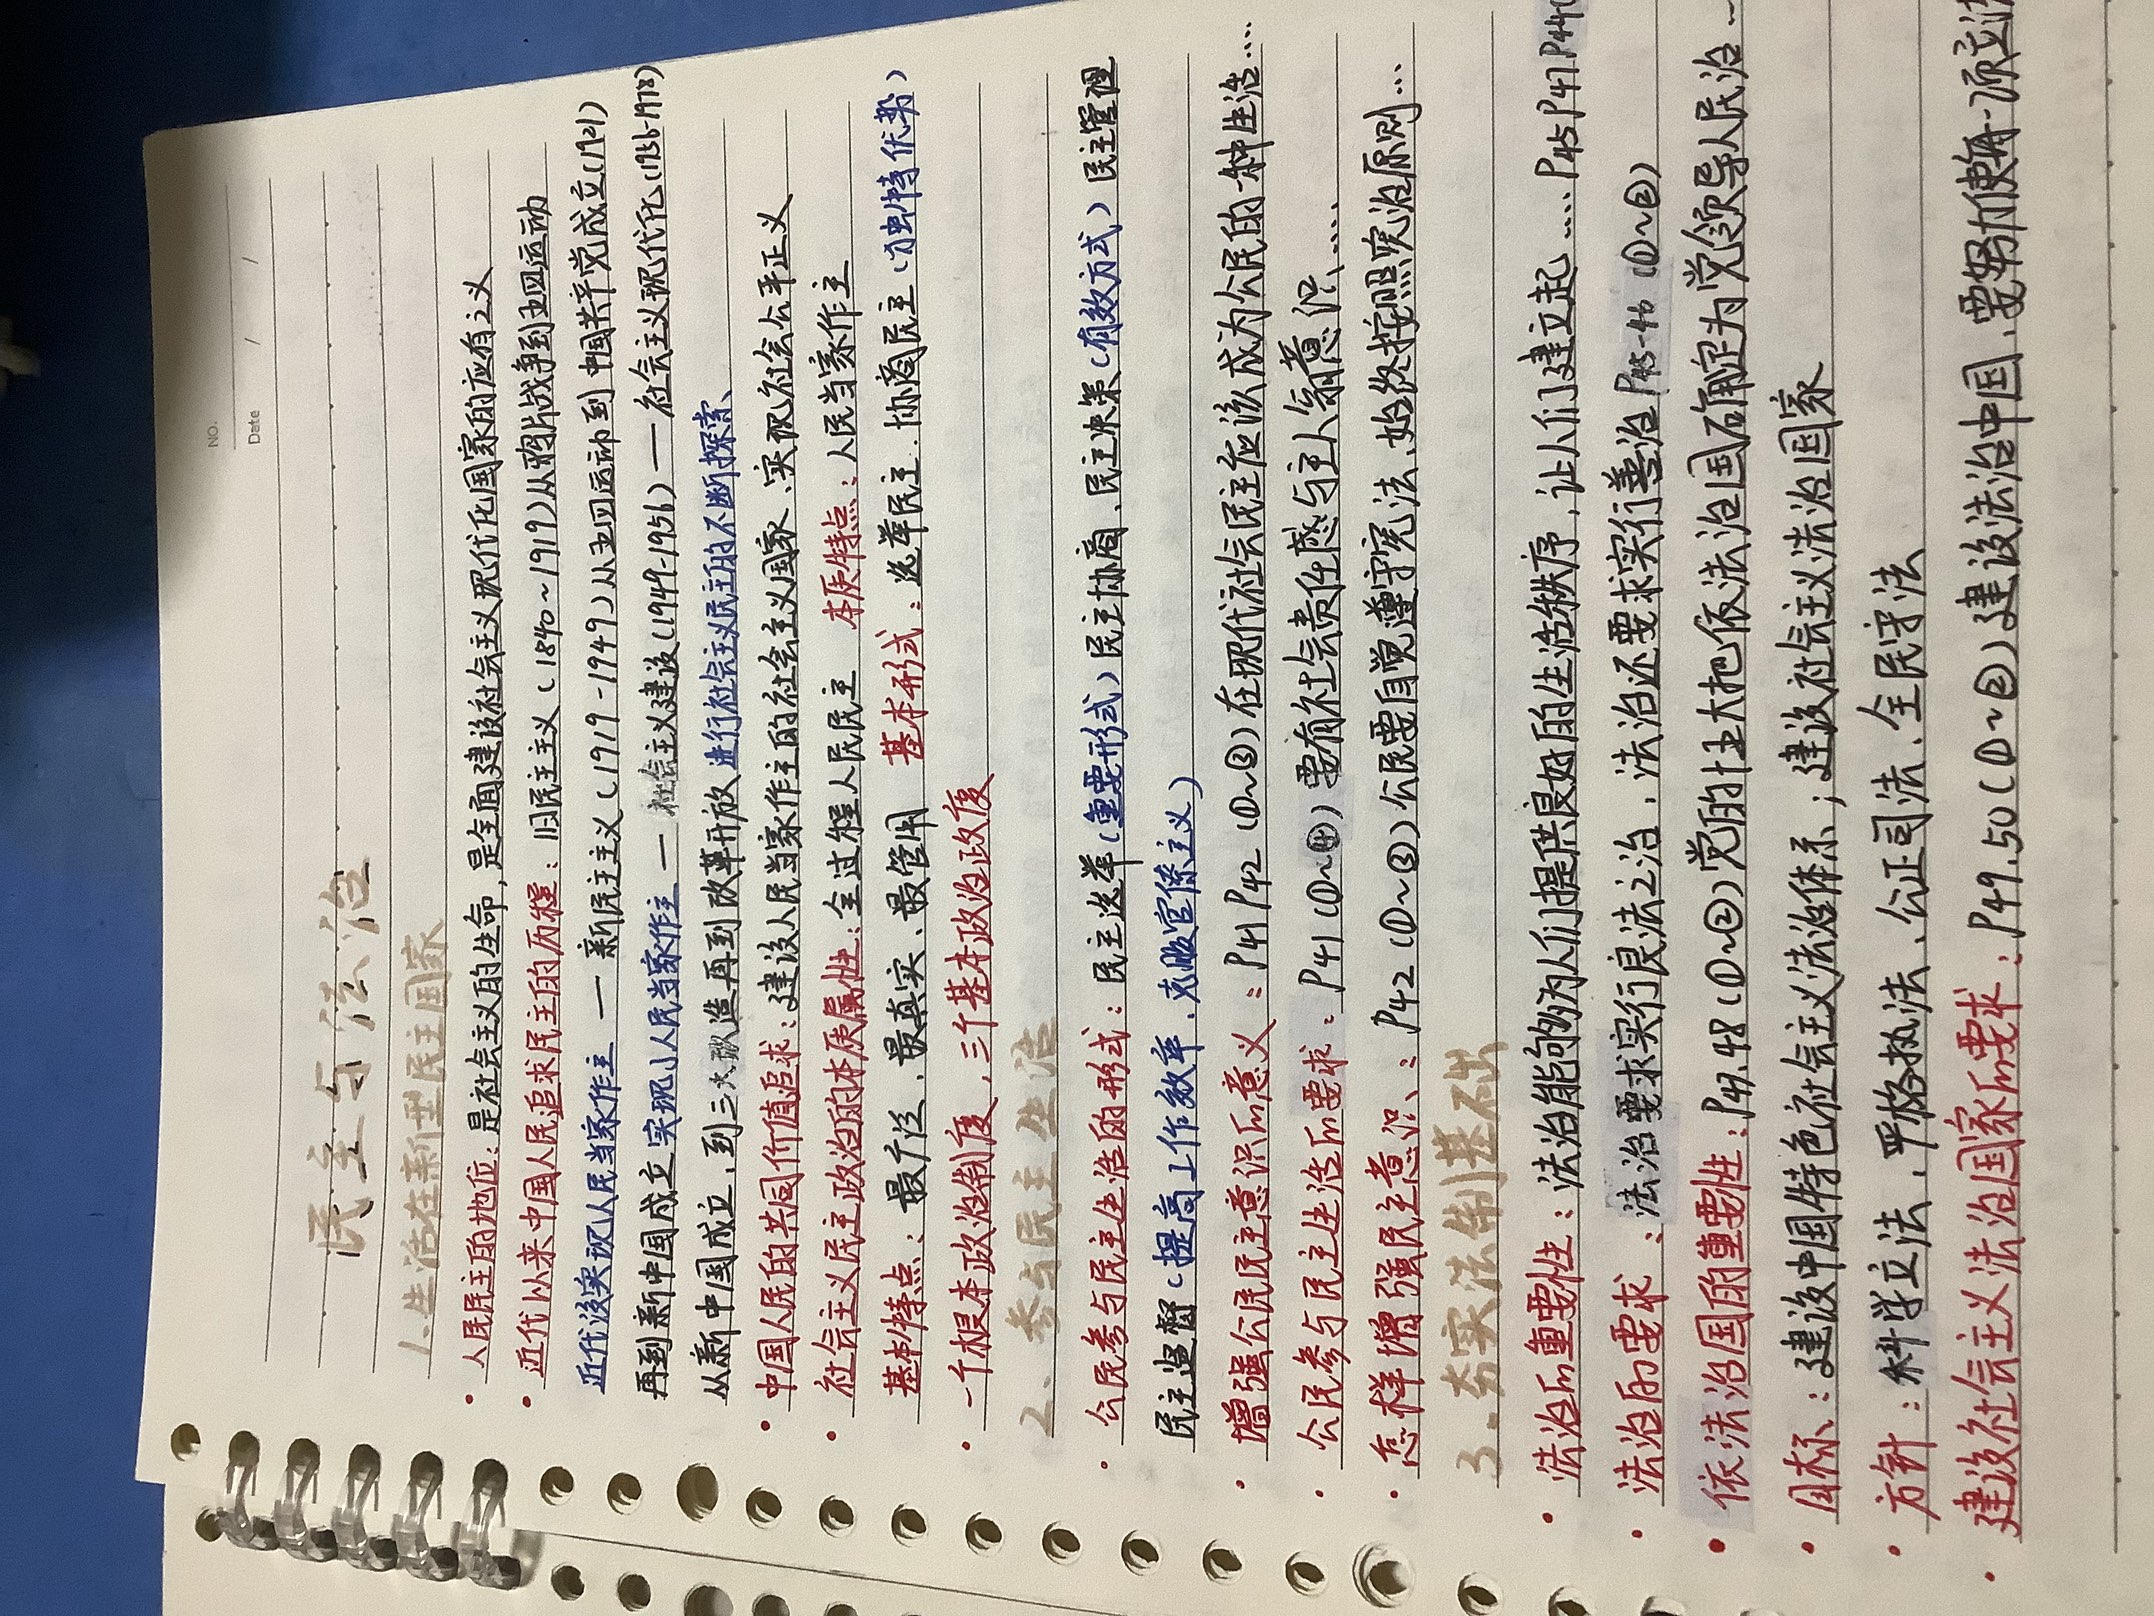 NO.
Date / /
民主与法治
1.生活在新型民主国家
· 人民民主的地位：是社会主义的生命，是全面建设社会主义现代化国家的应有之义
· 近代以来中国人民追求民主的历程：旧民主主义（1840～1919）从鸦片战争到五四运动
近代没实现人民当家作主 — 新民主主义（1919-1949）从五四运动到中国共产党成立（1921）
再到新中国成立实现人民当家作主 — 社会主义建设（1949-1956）— 社会主义现代化（1956-1978）
从新中国成立，到三大改造再到改革开放 进行社会主义民主的不断探索
· 中国人民的共同价值追求：建设人民当家作主的社会主义国家、实现社会公平正义
· 社会主义民主政治的本质属性：全过程人民民主 本质特点：人民当家作主
基本特点：最广泛、最真实、最管用 基本形式：选举民主、协商民主（独特优势）
· 一个根本政治制度，三个基本政治政度
2.参与民主生活
· 公民参与民主生活的形式：民主选举（重要形式）民主协商、民主决策（有效方式）民主管理
民主监督（提高工作效率、克服官僚主义）
· 增强公民民主意识的意义：P41 P42（①～③）在现代社会民主应该成为公民的一种生活……
· 公民参与民主生活的要求：P41（①～④）要有社会责任感与主人翁意识……
· 怎样增强民主意识：P42（①～③）公民要自觉遵守宪法、始终按照宪治原则…
3.夯实法制基础
· 法治的重要性：法治能够为人们提供良好的生活秩序，让人们建立起……P45 P47 P44
· 法治的要求：法治要求实行良法之治；法治还要求实行善治 P45-46（①～②）
· 依法治国的重要性：P47.48（①～②）党的十五大把依法治国确定为党领导人民治
· 目标：建设中国特色社会主义法治体系；建设社会主义法治国家
· 方针：科学立法、严格执法、公正司法、全民守法
· 建设社会主义法治国家的要求：P49.50（①～②）建设法治中国、要努力使每一项立法